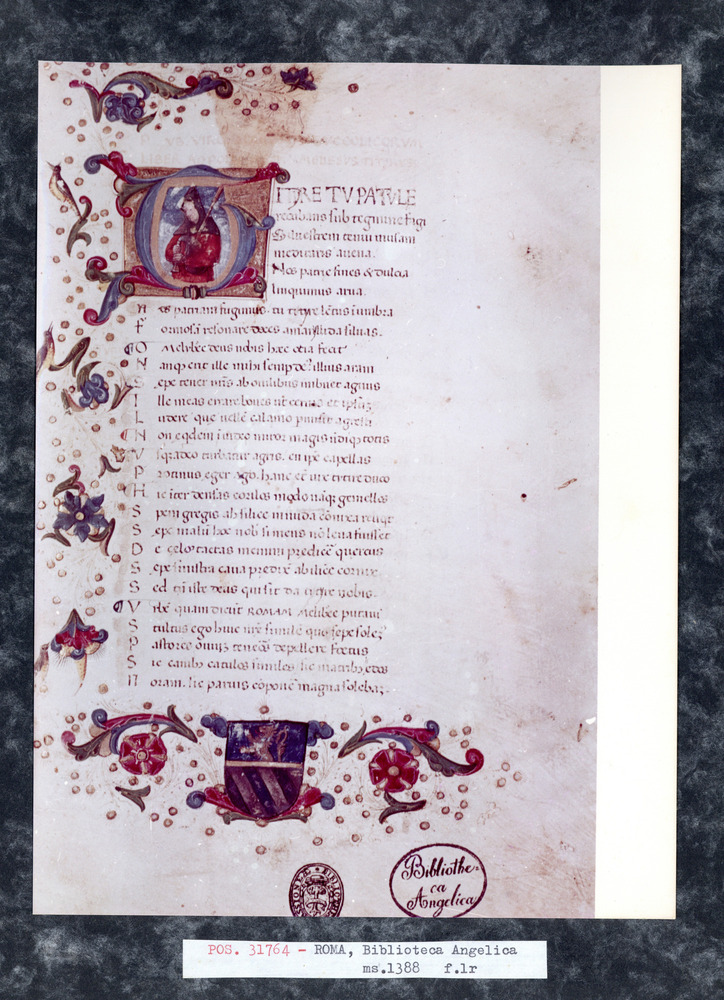 ITRE TV PATVLE
recubans sub tegmine fagi
Siluestrem tenui musam
meditaris auena.
Nos patrie fines & dulcia
linquimus arua.
Nos patriam fugimus. tu tityre lētus in umbra
Formosā resonare doces amarillida siluas.
O Melibee deus nobis hec otia fecit
Nanq erit ille mihi semp de illius aram
Sepe tener nrīs ab ouilibus imbuet agnus
Ille meas errare boues ut cernis et ipsuz
Ludere que uellē calamo pmisit agresti
Non eqdem inuideo miror magis undiqz totis
Vsqz adeo turbatur agris. en ipe capellas
Protinus eger ago. hanc et uix tityre duco
Hic iter densas corilos modo naqz gemellos
Spem gregis ah silice in nuda conixa reliqt
Sepe malū hoc nob si mens nō leua fuisset
De celo tactas memini predicē quercus
Sepe sinistra caua predixē ab ilice cornix
Sed tn iste deus qui sit da tityre nobis.
Vrbē quam dicūt ROMAM Melibee putaui
Stultus ego huic nrē similē quo sepe solez
Pastores ouiuz teneros depellere foetus
Sic canibz catulos similes sic matribz edos
Noram. sic paruis cōponē magna solebaz.
Bibliothe-
ca
Angelica
POS. 31764 - ROMA, Biblioteca Angelica
ms.1388 f.1r